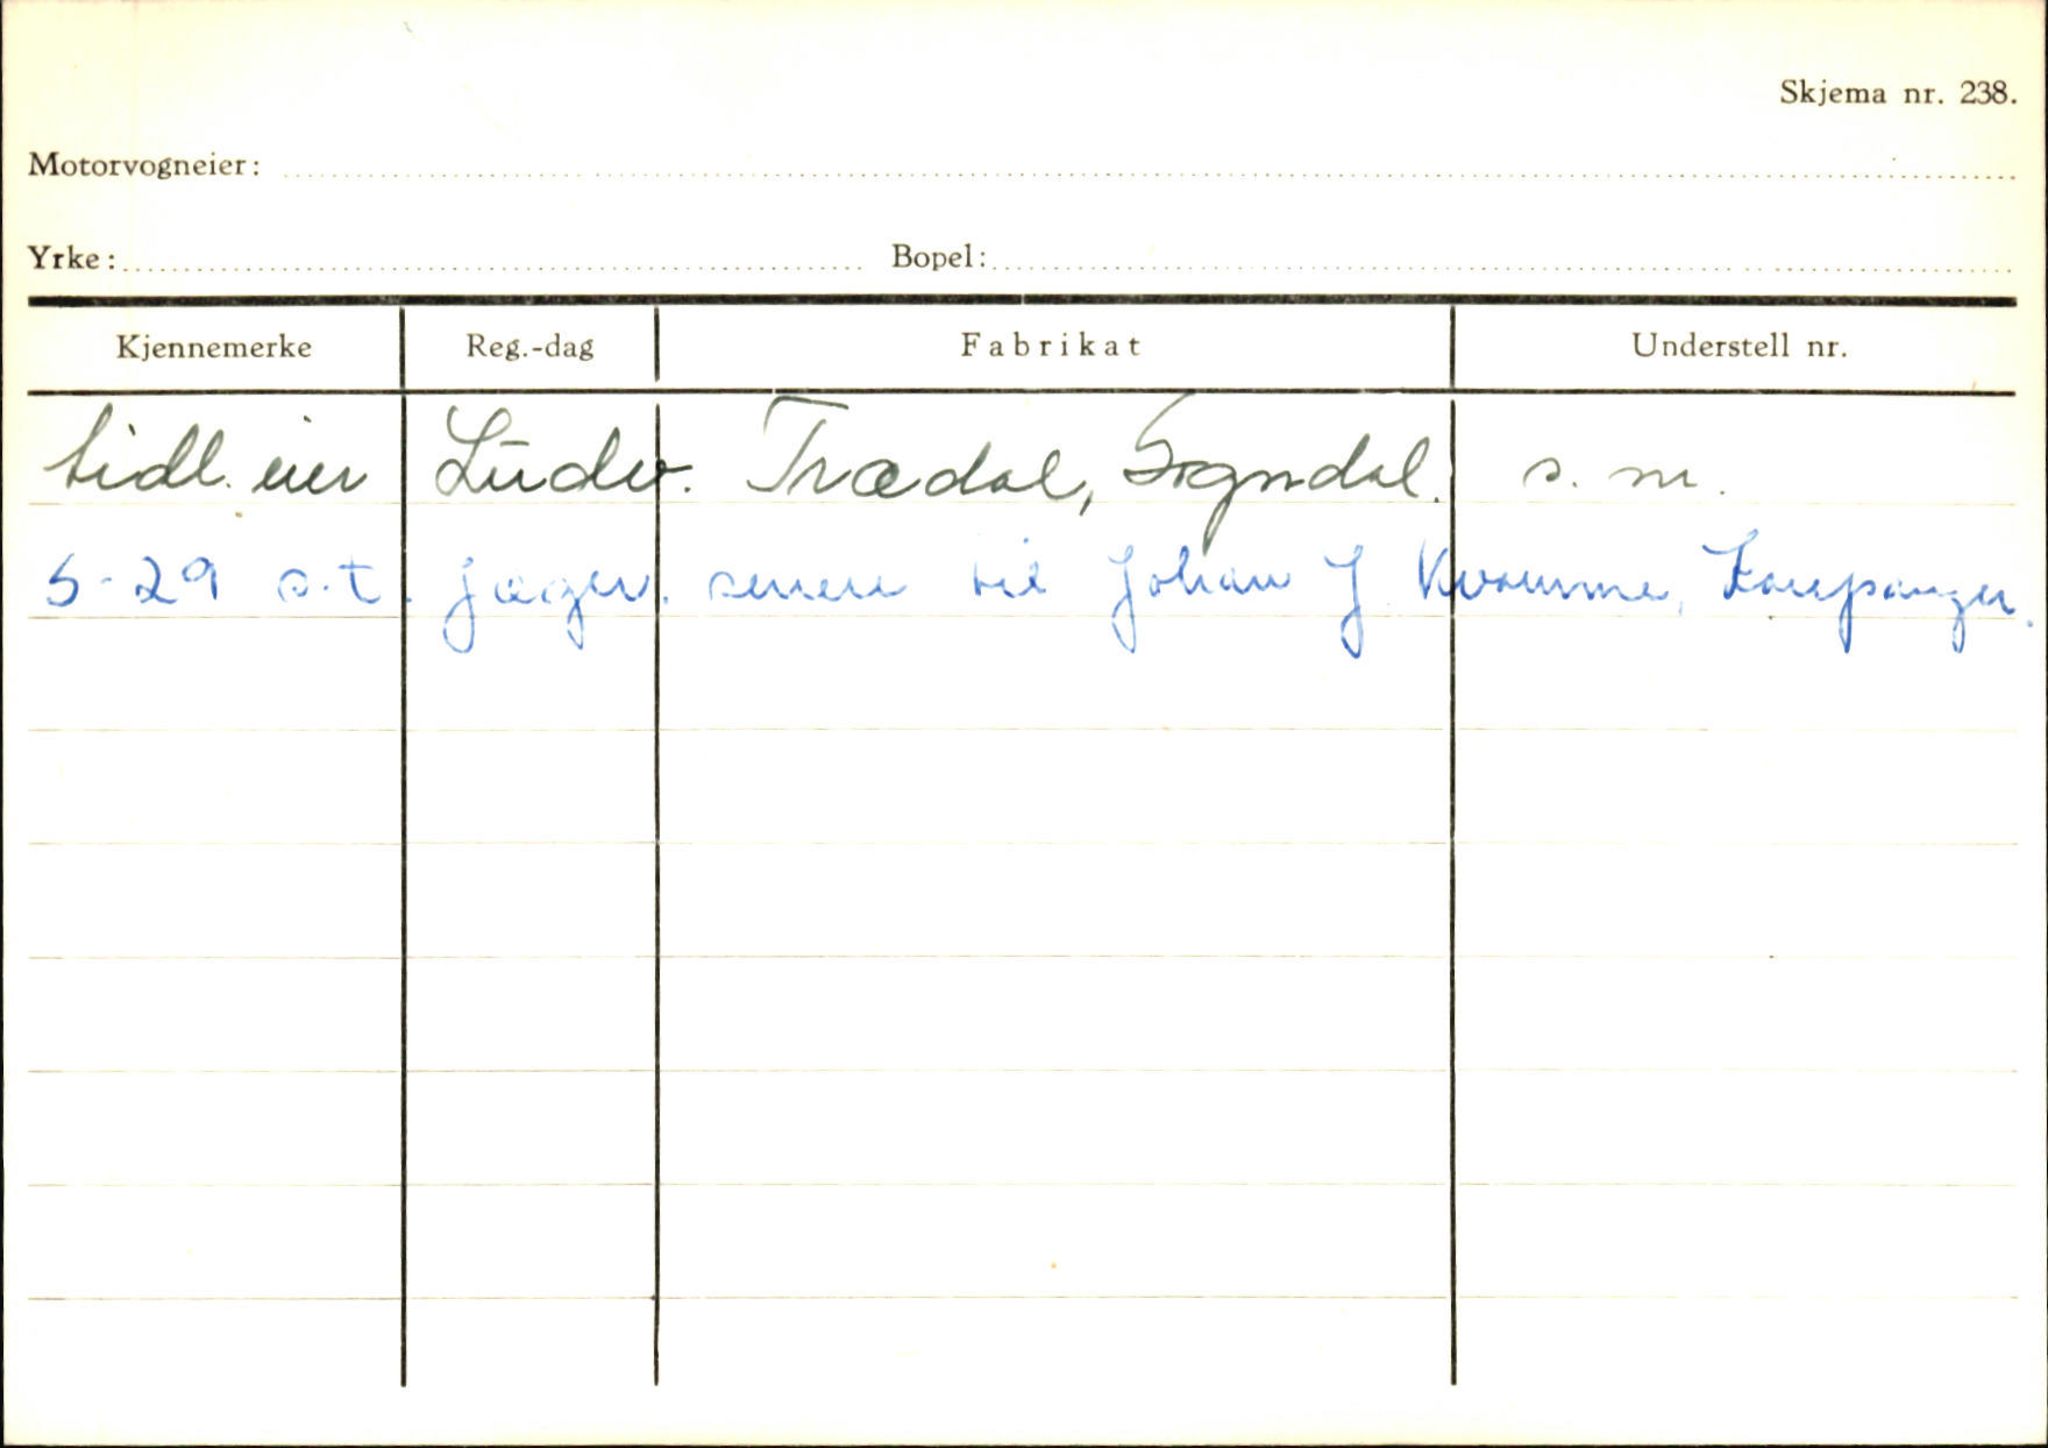 Skjema nr. 238.
Motorvogneier:
Yrke: Bopel:
Kjennemerke Reg.-dag Fabrikat Understell nr.
tidl. eier Ludv. Trædal, Sogndal. s. nr.
S-29 s.t. Jæger. senere til Johan J Kvamme, Kaupanger.